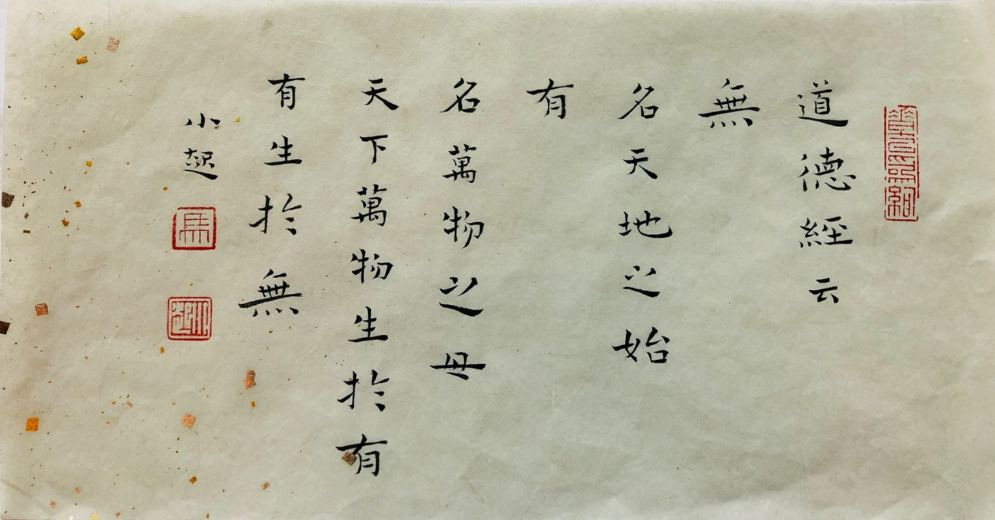 道德經云
無
名天地之始
有
名萬物之母
天下萬物生於有
有生於無
小起